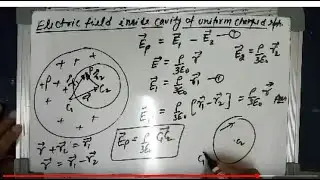 Electric field inside cavity of uniform charged sph
E⃗p = E⃗₁ - E⃗₂ —①
E⃗ = ρ/3ε₀ r⃗
E⃗₂ = ρ/3ε₀ r⃗₂
E⃗₁ = ρ/3ε₀ r⃗₁ —①
E⃗ = ρ/3ε₀ [r⃗₁ - r⃗₂] = ρ/3ε₀ r⃗
E⃗p = ρ/3ε₀ C₁C₂
r⃗ + r⃗₂ = r⃗₁
r⃗ = r⃗₁ - r⃗₂
C₁
C₂
C₁
C₂